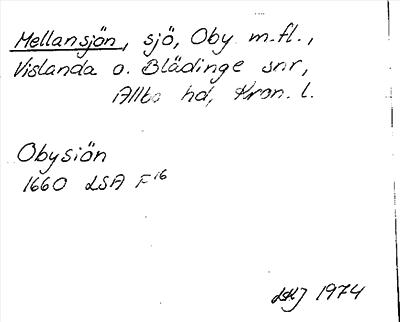 Mellansjön, sjö, Oby m.fl.,
Vislanda o. Blädinge snr,
Allbo hd, Kron. l.
Obysiön
1660 LSA F16
1974